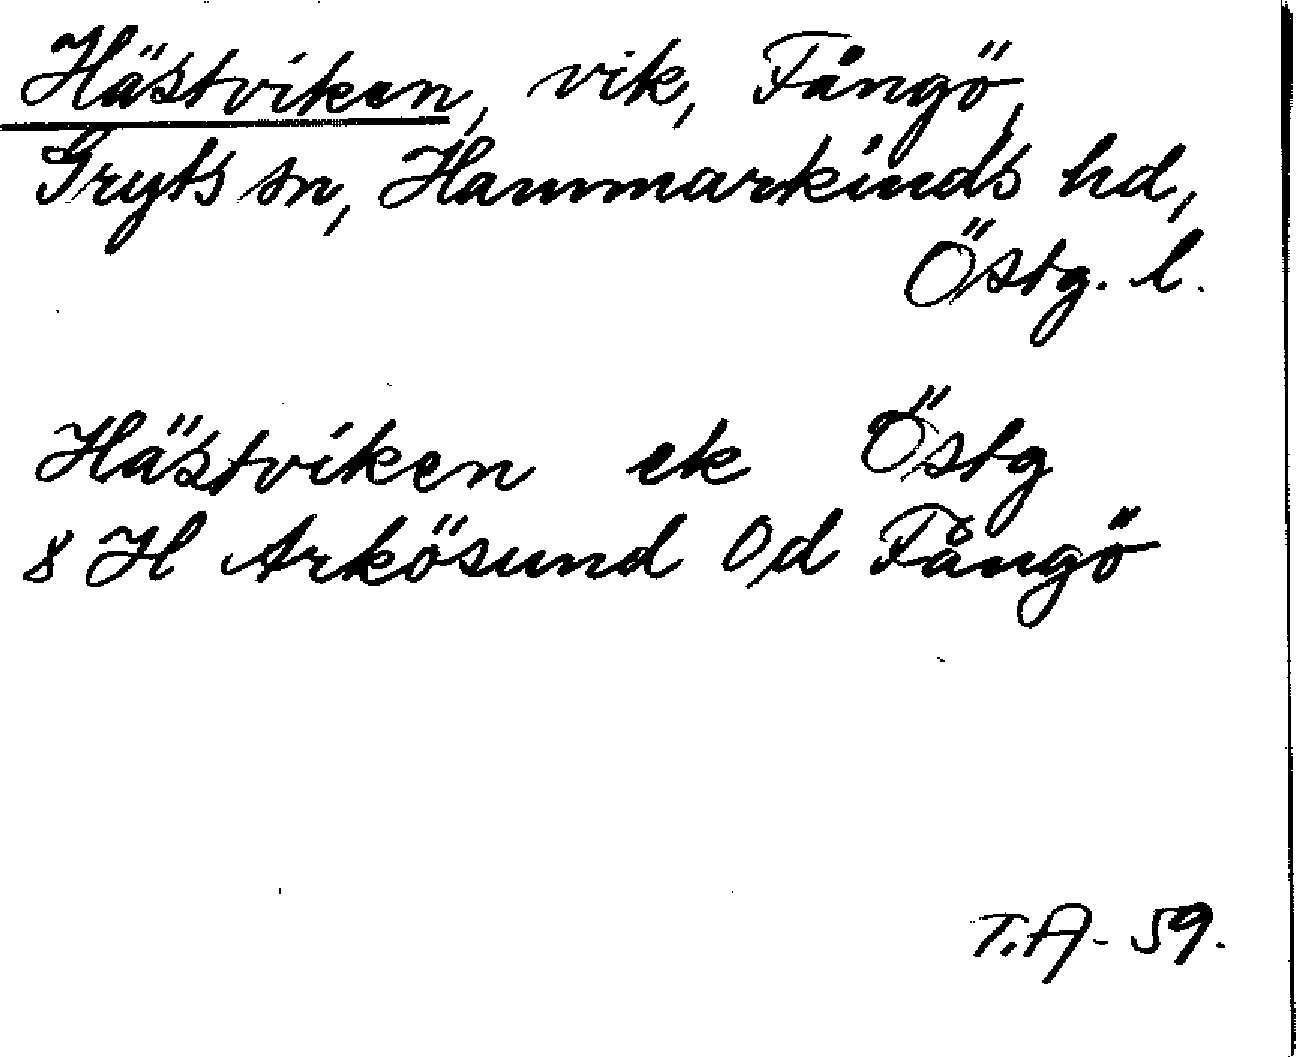 Hästviken, vik, Fångö,
Gryts sn, Hammarkinds hd,
Östg. l.
Hästviken ek Östg
8 H Arkösund Od Fångö
T.A- 59.